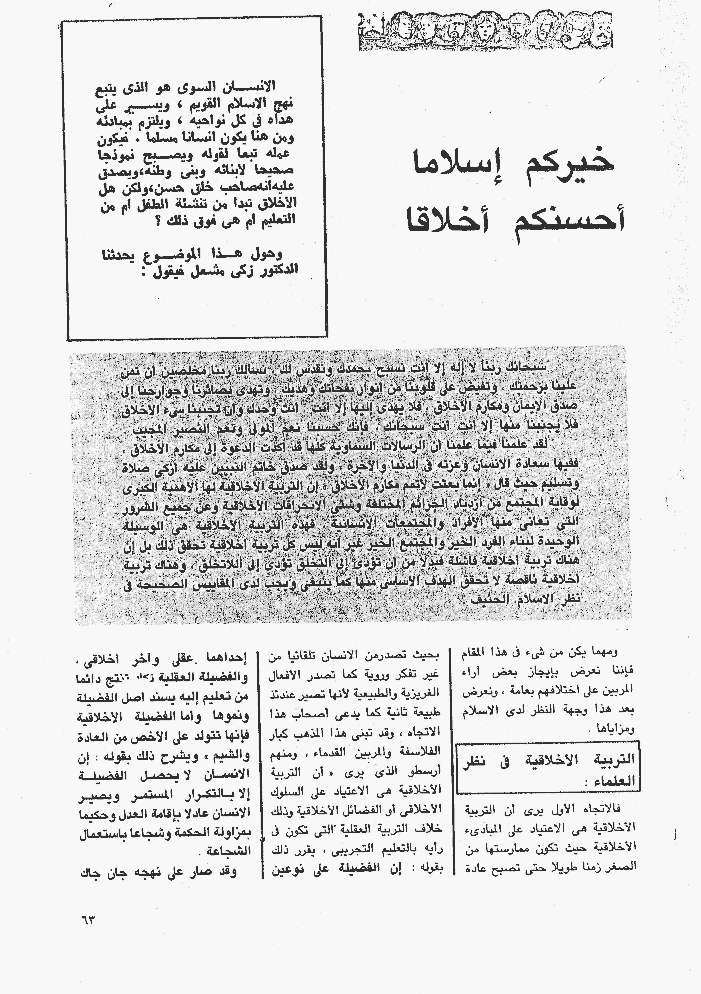 خيركم إسلاما
أحسنكم أخلاقا
الانسـان السوى هو الذى يتبع
نهج الاسلام القويم ، ويسـير على
هداه فى كل نواحيه ، ويلتزم بمبادئه
ومن هنا يكون انسانا مسلما . فيكون
عمله تبعا لقوله ويصـبح نموذجا
صحيحا لأبنائه وبنى وطنه،ويصدق
عليهانهصاحب خلق حسن،ولكن هل
الأخلاق تبدأ من تنشئة الطفل أم من
التعليم أم هى فوق ذلك ؟
وحول هـذا الموضـوع يحدثنا
الدكتور زكى مشعل فيقول :
سبحانك ربنا لا إله إلا أنت نسبح بحمدك ونقدس لك. نسألك ربنا مخلصين أن تمن
علينا برحمتك . وتفيض على قلوبنا من أنوار نفحاتك وهديك . وتهدى بصائرنا وجوارحنا إلى
صدق الايمان ومكارم الأخلاق . فلا يهدى إليها إلا أنت . أنت وحدك وأن تجنبنا سىء الأخلاق
فلا يجنبنا منها إلا أنت أنت سبحانك . فإنك حسبنا نعم المولى ونعم النصير المجيب
لقد علمنا فيما علمنا أن الرسالات السماوية كلها قد أكدت الدعوة إلى مكارم الأخلاق .
ففيها سعادة الانسان وعزته فى الدنيا والآخرة . ولقد صدق خاتم النبيين عليه أزكى صلاة
وتسليم حيث قال . إنما بعثت لأتمم مكارم الأخلاق . إن التربية الأخلاقية لها الأهمية الكبرى
لوقاية المجتمع من ازدياد الجرائم المختلفة وشتى الانحرافات الأخلاقية وعن جميع الشرور
التى تعانى منها الأفراد والمجتمعات الانسانية . فهذه التربية الأخلاقية هى الوسيلة
الوحيدة لبناء الفرد الخير والمجتمع الخير غير أنه ليس كل تربية أخلاقية تحقق ذلك بل إن
هناك تربية أخلاقية فاشلة فبدلا من أن تؤدى إلى التخلق تؤدى إلى اللاتخلق . وهناك تربية
أخلاقية ناقصة لا تحقق الهدف الأساسى منها كما ينبغى ويجب لدى المقاييس الصحيحة فى
نظر الاسلام الحنيف .
ومهما يكن من شىء فى هذا المقام
فإننا نعرض بإيجاز بعض آراء
المربين على اختلافهم بعامة ، ونعرض
بعد هذا وجهة النظر لدى الاسلام
ومزاياها .
التربية الأخلاقية فى نظر
العلماء :
فالاتجاه الأول يرى أن التربية
الأخلاقية هى الاعتياد على المبادىء
الأخلاقية حيث تكون ممارستها من
الصغر زمنا طويلا حتى تصبح عادة
بحيث تصدرمن الانسان تلقائيا من
غير تفكر وروية كما تصدر الأفعال
الغريزية والطبيعية لأنها تصير عندئذ
طبيعة ثانية كما يدعى أصحاب هذا
الاتجاه ، وقد تبنى هذا المذهب كبار
الفلاسفة والمربين القدماء ، ومنهم
أرسطو الذى يرى ، أن التربية
الأخلاقية هى الاعتياد على السلوك
الأخلاقى أو الفضائل الأخلاقية وذلك
خلاف التربية العقلية التى تكون فى
رأيه بالتعليم التجريبى ، يقرر ذلك
بقوله : إن الفضيلة على نوعين
إحداهما عقلى وآخر أخلاقى ،
والفضيلة العقلية تنتج دائما
من تعليم إليه يسند أصل الفضيلة
ونموها وأما الفضيلة الأخلاقية
فإنها تتولد على الأخص من العادة
والشيم ، ويشرح ذلك بقوله : إن
الانسـان لا يحصـل الفضيلـة
إلا بـالتكـرار المستمـر ويصيـر
الانسان عادلا بإقامة العدل وحكيما
بمزاولة الحكمة وشجاعا باستعمال
الشجاعة .
وقد صار على نهجه جان جاك
٦٣